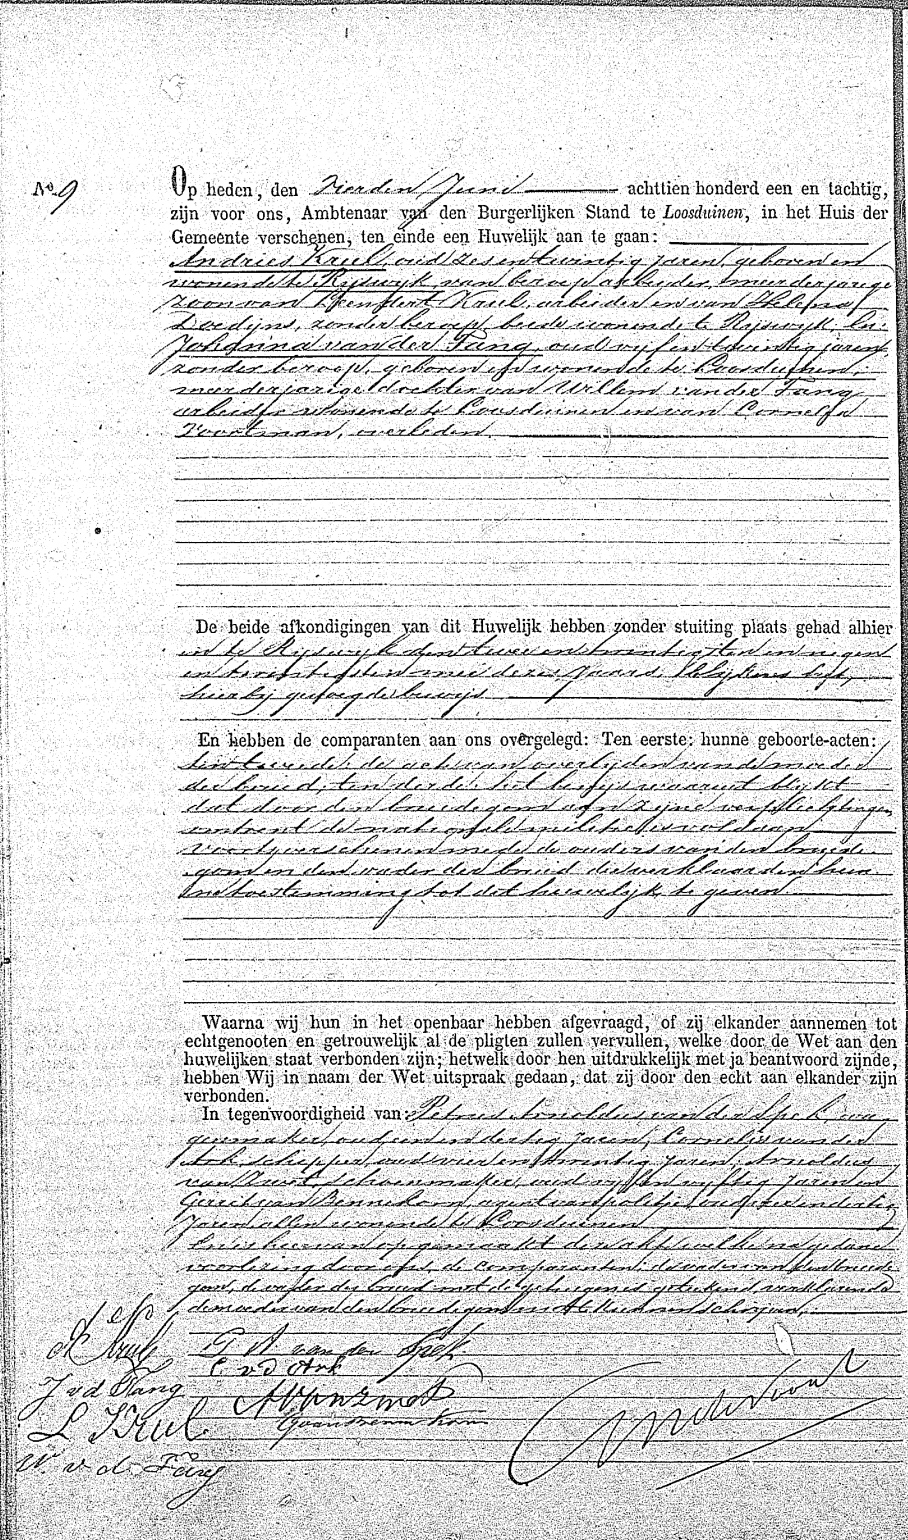 No. 9
Op heden, den vierden Juni achttien honderd een en tachtig,
zijn voor ons, Ambtenaar van den Burgerlijken Stand te Loosduinen, in het Huis der
Gemeente verschenen, ten einde een Huwelijk aan te gaan:
Andries Krul, oud zes en twintig jaren, geboren en
wonende te Rijswijk, van beroep arbeider, meerderjarige
zoon van Leendert Krul, arbeider en van Helena
zonder beroep, beide wonende te Rijswijk, en:
Johanna van der Tang, oud vijf en twintig jaren
zonder beroep, geboren en wonende te Loosduinen,
meerderjarige dochter van Willem van der Tang
arbeider wonende te Loosduinen en van Cornelia
Poortman, overleden.
De beide afkondigingen van dit Huwelijk hebben zonder stuiting plaats gehad alhier
en te Rijswijk den twee en twintigsten en negen
en twintigsten mei dezes jaars, blijkens het
hierbij gevoegde bewijs
En hebben de comparanten aan ons overgelegd: Ten eerste: hunne geboorte-acten;
ten tweede: de acte van overlijden van de moeder
der bruid, ten derde: het bewijs waaruit blijkt
dat door den bruidegom aan zijne verpligtingen
omtrent de nationale militie is voldaan
Voorts verschenen mede de ouders van den bruide
gom en den vader der bruid die verklaarden hun
ne toestemming tot dit huwelijk te geven.
Waarna wij hun in het openbaar hebben afgevraagd, of zij elkander aannemen tot
echtgenooten en getrouwelijk al de pligten zullen vervullen, welke door de Wet aan den
huwelijken staat verbonden zijn; hetwelk door hen uitdrukkelijk met ja beantwoord zijnde,
hebben Wij in naam der Wet uitspraak gedaan, dat zij door den echt aan elkander zijn
verbonden.
In tegenwoordigheid van: Petrus Arnoldus van der Spek, wa
genmaker, oud een en dertig jaren, Cornelis van der
Ark, schipper, oud vier en twintig jaren, Arnoldus
van schoenmaker, oud vijf en vijftig jaren en
Gerrit van Bennekom, agent van politie, oud en dertig
jaren allen wonende te Loosduinen
En is hiervan opgemaakt deze akte welke na gedane
voorlezing door ons, de comparanten, de vader van den bruide
gom, de vader der bruid met de getuigen is geteekend, verklarende
de moeder van den bruidegom niet te kunnen schrijven.
A Krul
J v d Tang
L Krul
W. v. d. Tang
P A van der Spek
C v d Ark
G van Bennekom